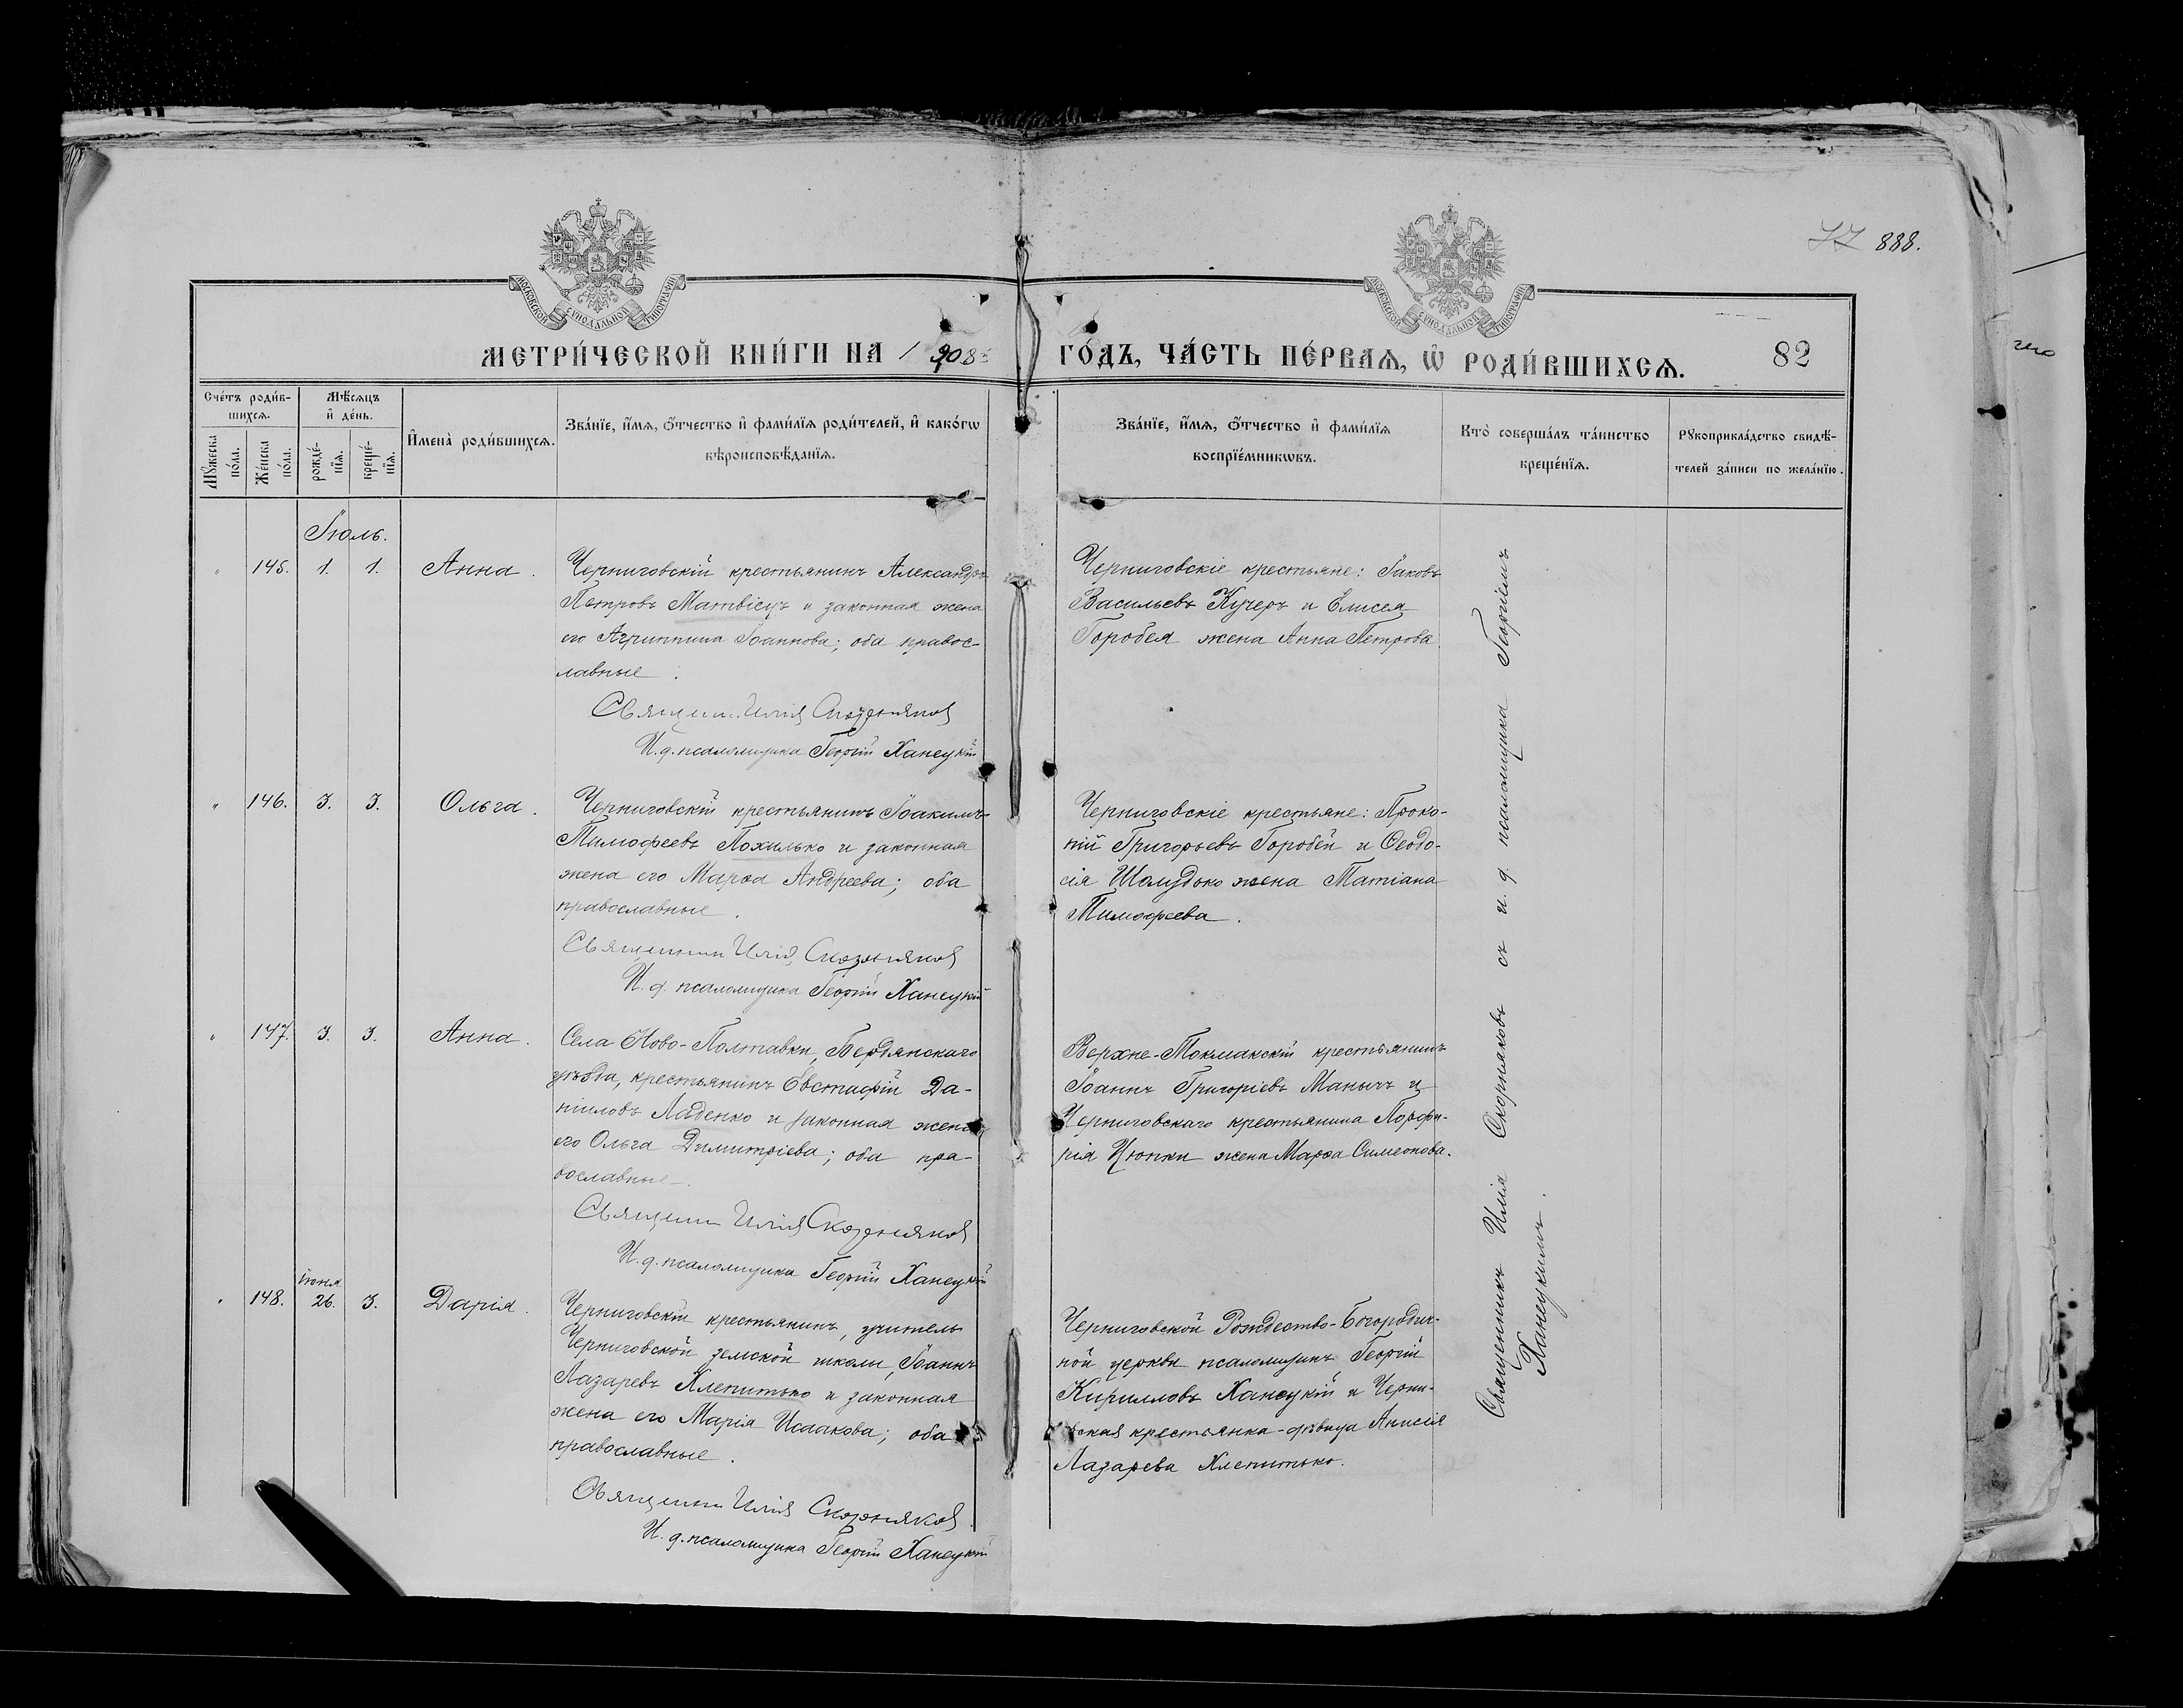 888.
МОСКОВСКОЙ СѴНОДАЛЬНОЙ ТИПОГРАФІИ
МОСКОВСКОЙ СѴНОДАЛЬНОЙ ТИПОГРАФІИ
МЕТРИ́ЧЕСКОЙ КНИ́ГИ НА 1908й
ГО́ДЪ, ЧА́СТЬ ПЕ́РВАѦ, Ѡ҆ РОДИ́ВШИХСѦ.
82
Сче́тъ роди́в-
шихсѧ.
Мѣ́сѧцъ
и҆ де́нь.
Мꙋ́жеска
по́ла.
Же́нска
по́ла.
рожде́-
нїѧ.
креще́-
нїѧ.
И҆мена̀ роди́вшихсѧ.
Зва́нїе, и҆́мѧ, ѻ҆́тчество и҆ фами́лїѧ роди́телей, и҆ како́гѡ
вѣроисповѣ́данїѧ.
Зва́нїе, и҆́мѧ, ѻ҆́тчество и҆ фами́лїѧ
воспрїе́мникѡвъ.
Кто̀ соверша́лъ та́инство
креще́нїѧ.
Рꙋкоприкла́дство свидѣ́-
телей за́писи по жела́нїю.
Іюль.
" 145. 1. 1. Анна.
Черниговскій крестьянинъ Александръ
Петровъ Матвіецъ и законная жена
его Агриппина Іоаннова; оба правос-
лавные.
Священ. Илія Скорняков
И. д. псаломщика Георгій Ханецкій
Черниговскіе крестьяне: Іаковъ
Васильевъ Кучеръ и Елисея
Горобея жена Анна Петрова.
" 146. 3. 3. Ольга.
Черниговскій крестьянинъ Іоакимъ
Тимофеевъ Похилько и законная
жена его Марѳа Андреева; оба
православные.
Священник Илія Скорняков
И. д. псаломщика Георгій Ханецкій
Черниговскіе крестьяне: Проко-
пій Григорьевъ Горобей и Ѳеодо-
сія жена Татіана
Тимофеева.
" 147. 3. 3. Анна.
Села Ново-Полтавки, Бердянскаго
уѣзда, крестьянинъ Евстафій Да-
ніиловъ Ладенко и законная жена
его Ольга Димитріева; оба пра-
вославные.
Священ Илія Скорняков
И. д. псаломщика Георгій Ханецкій
Верхне-Токмакскій крестьянинъ
Іоаннъ Григоріевъ Манычъ и
Черниговскаго крестьянина Порфи-
рія Цюпки жена Марѳа Симеонова.
" 148. іюня 26. 3. Дарія.
Черниговскій крестьянинъ, учитель
Черниговской земской школы, Іоаннъ
Лазаревъ Клепитько и законная
жена его Марія Исаакова; оба
православные.
Священник Илія Скорняков.
И. д. псаломщика Георгій Ханецкій
Черниговской Рождество-Богородич-
ной церкви псаломщикъ Георгій
Кирилловъ Ханецкій и Черни-
вская крестьянка-дѣвица Анисія
Лазарева Клепитько.
Священникъ Илія Скорняковъ съ и. д. псаломщика Георгіемъ
Ханецкимъ.